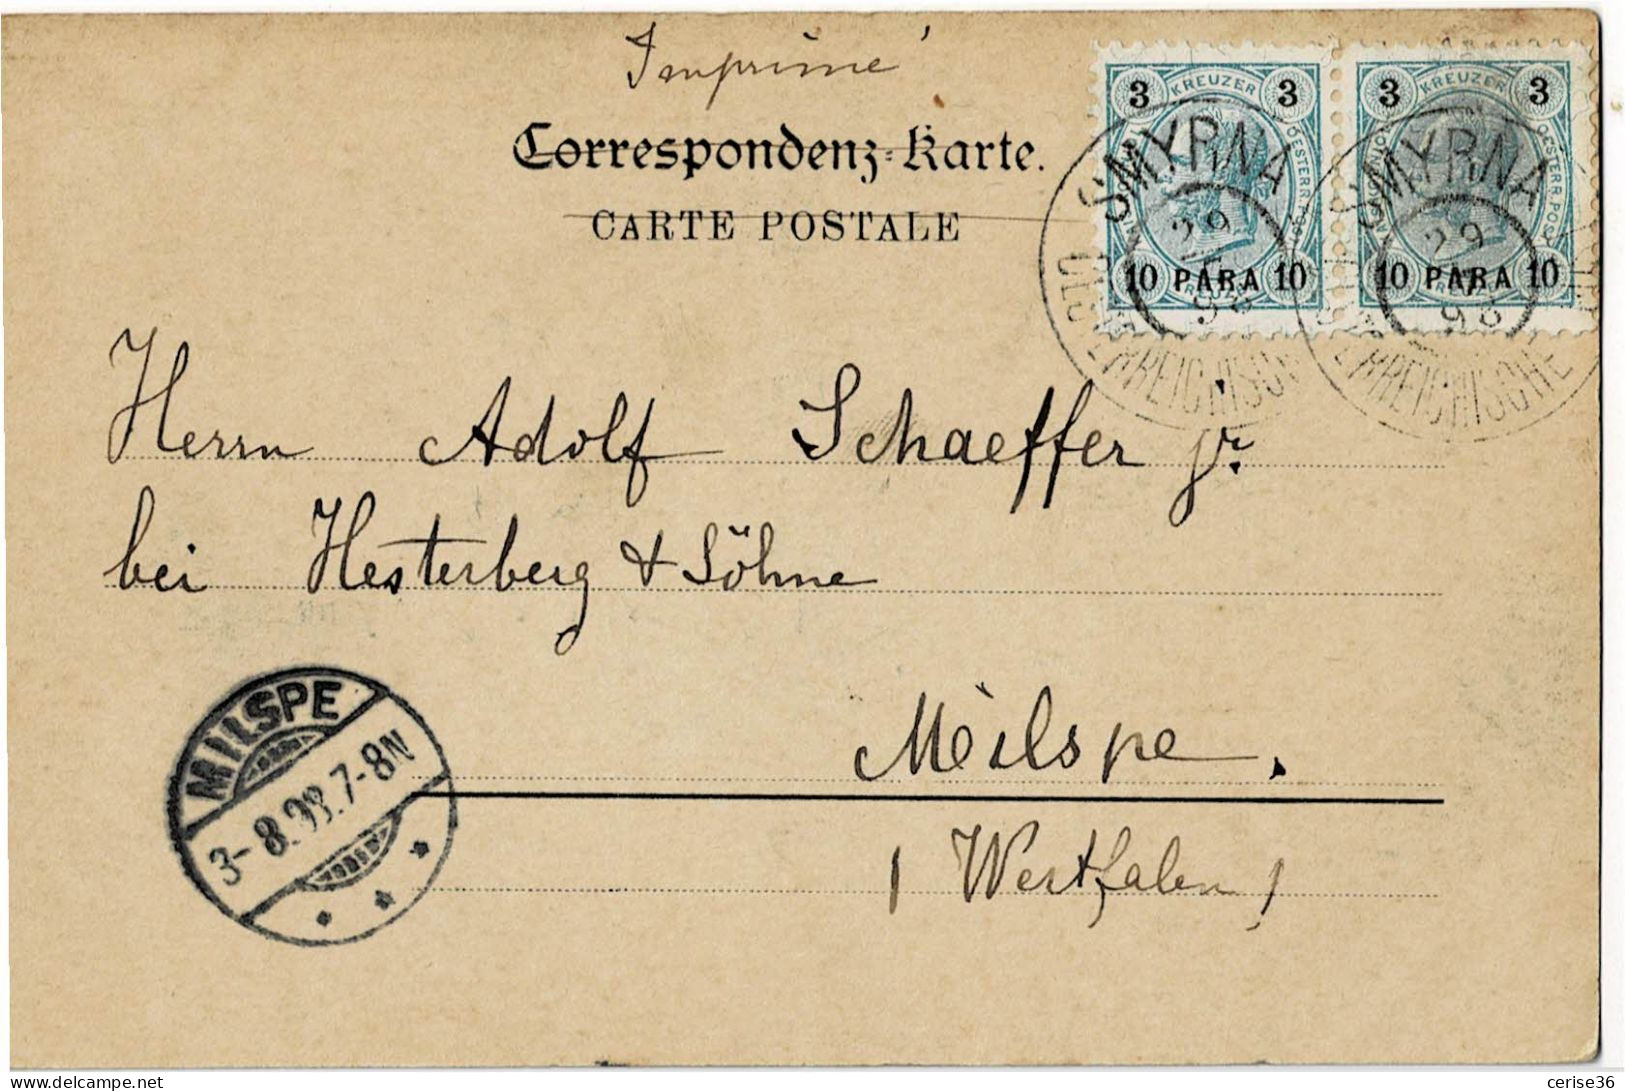 Imprimé
Correspondenz-Karte.
CARTE POSTALE
3 KREUZER 3
10 PARA 10
3 KREUZER 3
OESTERR. POST
10 PARA 10
SMYRNA
29
98
SMYRNA
29
7
98
ÖSTERREICHISCHE
Herrn Adolf Schaeffer jr.
bei Hesterberg & Söhne
Milspe.
(Westfalen)
MILSPE
3-8.98.7-8N
cerise36
delcampe.net